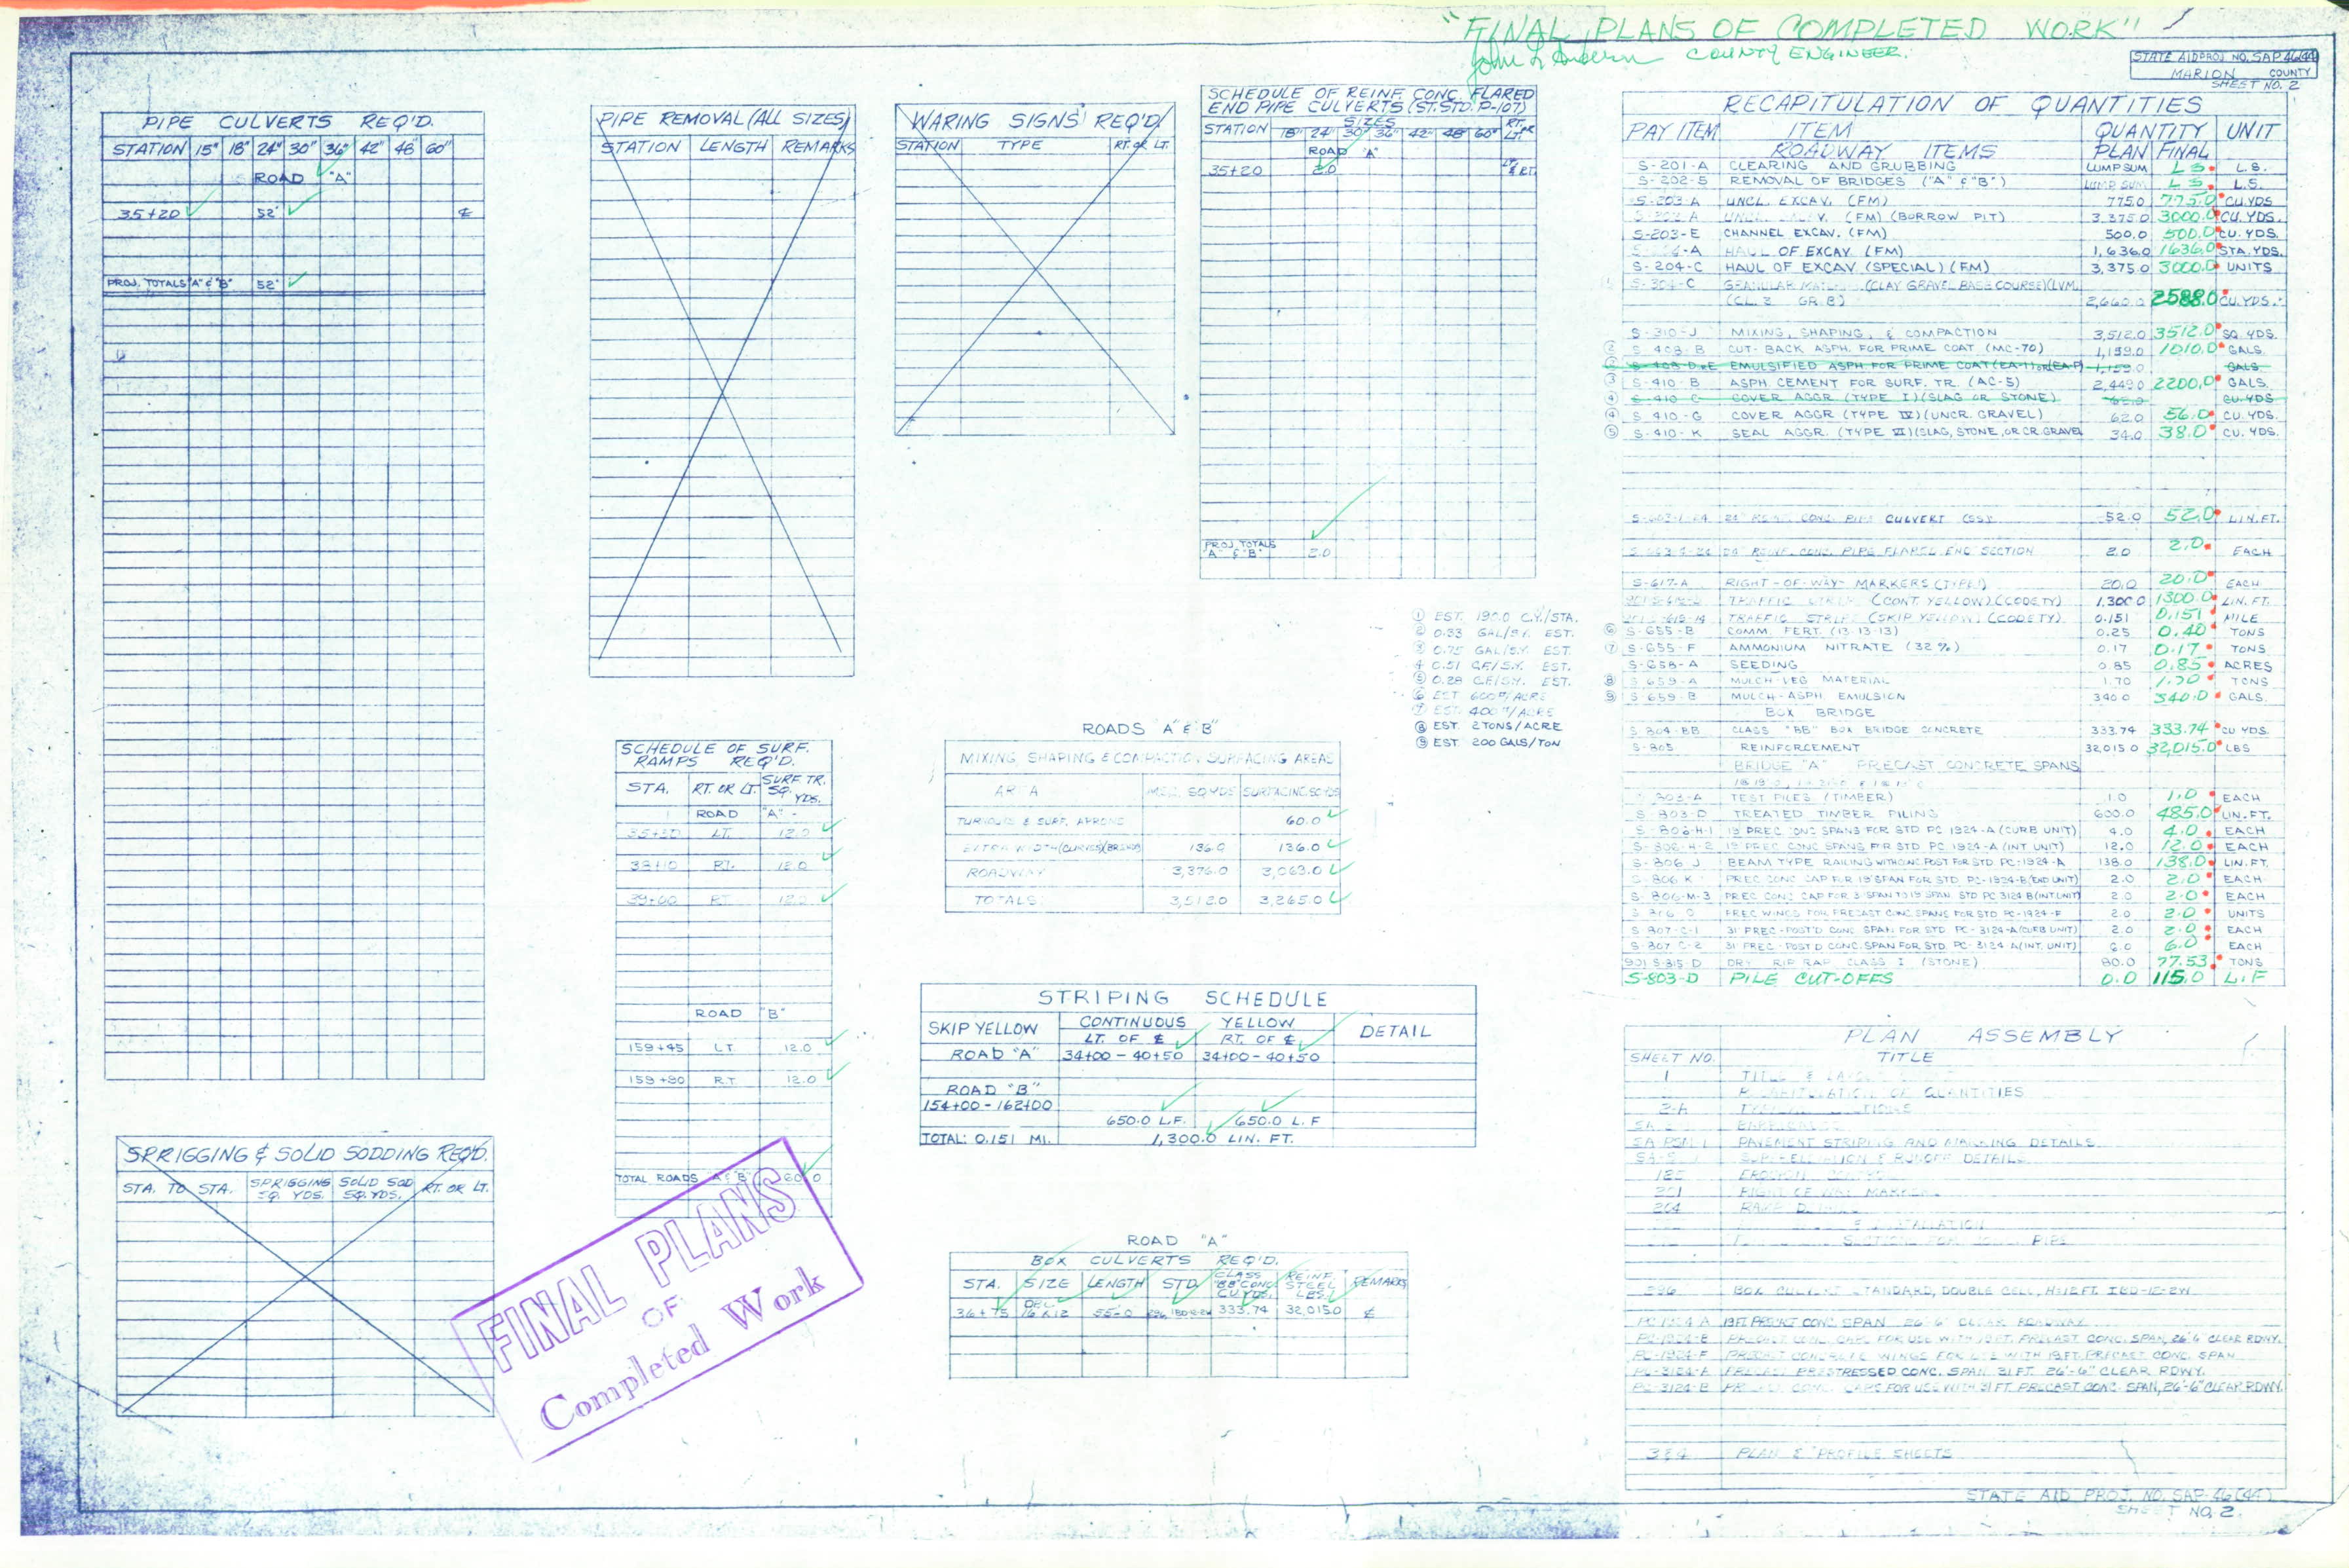 "FINAL PLANS OF COMPLETED WORK"
COUNTY ENGINEER.
STATE AID PROJ. NO. SAP 46(44)
MARION COUNTY
SHEET NO. 2
PIPE CULVERTS REQ'D.
STATION 15" 18" 24" 30" 36" 42" 48" 60"
ROAD "A"
35+20 52' ℄
PROJ. TOTALS "A" & "B" 52'
PIPE REMOVAL (ALL SIZES)
STATION LENGTH REMARKS
WARING SIGNS REQ'D
STATION TYPE RT. OR LT.
SCHEDULE OF REINF. CONC. FLARED
END PIPE CULVERTS (ST. STD. P-107)
STATION SIZES
18" 24" 30" 36" 42" 48" 60" RT. OR LT.
ROAD "A"
35+20 2.0 LT. & RT.
PROJ. TOTALS
"A" & "B" 2.0
① EST. 190.0 C.Y./STA.
② 0.33 GAL/S.Y. EST.
③ 0.75 GAL/S.Y. EST.
4 0.51 C.F./S.Y. EST.
⑤ 0.28 C.F./S.Y. EST.
⑥ EST 600#/ACRE
⑦ EST. 400#/ACRE
⑧ EST. 2 TONS/ACRE
⑨ EST. 200 GALS/TON
SCHEDULE OF SURF.
RAMPS REQ'D.
STA. RT. OR LT. SURF. TR. SQ. YDS.
ROAD "A"
LT. 12.0
38+10 RT. 12.0
39+00 RT 12.0
ROAD "B"
159+45 LT 12.0
159+90 RT. 12.0
TOTAL ROADS "A" & "B" 60.0
ROADS "A" & "B"
MIXING SHAPING & COMPACTION SURFACING AREAS
AREA M.S.C. SQ.YDS SURFACING SQ.YDS
TURNOUTS & SURF. APRONS 60.0
EXTRA WIDTH (CURVES) 136.0 136.0
ROADWAY 3,376.0 3,063.0
TOTALS 3,512.0 3,265.0
STRIPING SCHEDULE
SKIP YELLOW CONTINUOUS YELLOW DETAIL
LT. OF ℄ RT. OF ℄
ROAD "A" 34+00 - 40+50 34+00 - 40+50
ROAD "B"
154+00 - 162+00
650.0 L.F. 650.0 L.F
TOTAL: 0.151 MI. 1,300.0 LIN. FT.
ROAD "A"
BOX CULVERTS REQ'D.
STA. SIZE LENGTH STD. CLASS "BB" CONC. CU. YDS. REINF. STEEL LBS. REMARKS
36+75 55.0 333.74 32,015.0 ℄
SPRIGGING & SOLID SODDING REQ'D.
STA. TO STA. SPRIGGING SQ. YDS. SOLID SOD SQ. YDS. RT. OR LT.
FINAL PLANS
OF
Completed Work
RECAPITULATION OF QUANTITIES
PAY ITEM ITEM QUANTITY UNIT
ROADWAY ITEMS PLAN FINAL
S-201-A CLEARING AND GRUBBING LUMP SUM L.S. L.S.
S-202-5 REMOVAL OF BRIDGES ("A" & "B") LUMP SUM L.S. L.S.
S-203-A UNCL. EXCAV. (FM) 775.0 775.0 CU. YDS
(FM) (BORROW PIT) 3,375.0 3000.0 CU. YDS.
S-203-E CHANNEL EXCAV. (FM) 500.0 500.0 CU. YDS.
HAUL OF EXCAV. (FM) 1,636.0 1636.0 STA. YDS.
S-204-C HAUL OF EXCAV. (SPECIAL) (FM) 3,375.0 3000.0 UNITS
S-304-C GRANULAR MATL. (CLAY GRAVEL BASE COURSE) (LVM)
(CL. 2 GR. B) 2,660.0 2588.0 CU. YDS.
S-310-J MIXING, SHAPING, & COMPACTION 3,512.0 3512.0 SQ. YDS
② S-408-B CUT-BACK ASPH. FOR PRIME COAT (MC-70) 1,159.0 1010.0 GALS.
② S-408-D or E EMULSIFIED ASPH. FOR PRIME COAT (EA-1) or (EA-P) 1,159.0 GALS
③ S-410-B ASPH. CEMENT FOR SURF. TR. (AC-5) 2,449.0 2200.0 GALS.
④ S-410-C COVER AGGR. (TYPE I) (SLAG OR STONE) CU. YDS
④ S-410-G COVER AGGR. (TYPE IV) (UNCR. GRAVEL) 62.0 56.0 CU. YDS.
⑤ S-410-K SEAL AGGR. (TYPE VI) (SLAG, STONE, OR CR. GRAVEL 34.0 38.0 CU. YDS.
24" REINF. CONC. PIPE CULVERT 52.0 52.0 LIN. FT.
24" REINF. CONC. PIPE FLARED END SECTION 2.0 2.0 EACH
S-617-A RIGHT-OF-WAY-MARKERS (TYPE I) 20.0 20.0 EACH
TRAFFIC STRIPE (CONT. YELLOW) (CODE TY) 1,300.0 1300.0 LIN. FT.
TRAFFIC STRIPE (SKIP YELLOW) (CODE TY) 0.151 0.151 MILE
⑥ S-655-B COMM. FERT. (13-13-13) 0.25 0.40 TONS
⑦ S-655-F AMMONIUM NITRATE (32%) 0.17 0.17 TONS
S-658-A SEEDING 0.85 0.85 ACRES
⑧ S-659-A MULCH-VEG MATERIAL 1.70 1.70 TONS
⑨ S-659-B MULCH-ASPH. EMULSION 340.0 340.0 GALS.
BOX BRIDGE
S-804-BB CLASS "BB" BOX BRIDGE CONCRETE 333.74 333.74 CU YDS.
S-805 REINFORCEMENT 32,015.0 32,015.0 LBS
BRIDGE "A" PRECAST CONCRETE SPANS
S-803-A TEST PILES (TIMBER) 1.0 1.0 EACH
S-803-D TREATED TIMBER PILING 600.0 485.0 LIN. FT.
S-806-H-1 19' PREC CONC SPANS FOR STD PC 1924-A (CURB UNIT) 4.0 4.0 EACH
S-806-H-2 19' PREC CONC SPANS FOR STD PC 1924-A (INT UNIT) 12.0 12.0 EACH
S-806 J BEAM TYPE RAILING WITH CONC. POST FOR STD. PC-1924-A 138.0 138.0 LIN. FT.
S-806 K PREC CONC CAP FOR 19' SPAN FOR STD PC-1924-B (END UNIT) 2.0 2.0 EACH
S-806-M-3 PREC CONC CAP FOR 31 SPAN TO 19 SPAN STD PC 3124 B (INT. UNIT) 2.0 2.0 EACH
PREC WINGS FOR PRECAST CONC. SPANS FOR STD PC-1924-F 2.0 2.0 UNITS
S-807-C-1 31' PREC-POST'D CONC SPAN FOR STD PC-3124-A (CURB UNIT) 2.0 2.0 EACH
S-807 C-2 31' PREC-POST'D CONC. SPAN FOR STD. PC-3124 A (INT. UNIT) 6.0 6.0 EACH
901 S-815-D DRY RIP RAP CLASS I (STONE) 80.0 77.53 TONS
S-803-D PILE CUT-OFFS 0.0 115.0 L.F
PLAN ASSEMBLY
SHEET NO. TITLE
1 TITLE &
RECAPITULATION OF QUANTITIES
2-A
PAVEMENT STRIPING AND MARKING DETAILS
SUPERELEVATION & RUNOFF DETAILS
201 RIGHT OF WAY MARKER
204
PIPE
296 BOX CULVERT STANDARD, DOUBLE CELL,
PC-1924 A 19 FT PRECAST CONC. SPAN 26'-6" CLEAR ROADWAY
PC-1924-B PRECAST CONC. CAPS FOR USE WITH 19 FT. PRECAST CONC. SPAN, 26'6 CLEAR RDWY.
PC-1924-F PRECAST CONCRETE WINGS FOR USE WITH 19 FT. PRECAST CONC. SPAN
PC-3124-A PRECAST PRESTRESSED CONC. SPAN 31 FT. 26'-6" CLEAR RDWY.
PC-3124-B CONC. CAPS FOR USE WITH 31 FT. PRECAST CONC. SPAN, 26'-6" CLEAR RDWY.
3 & 4 PLAN & PROFILE SHEETS
STATE AID PROJ. NO. SAP-46(44)
SHEET NO. 2